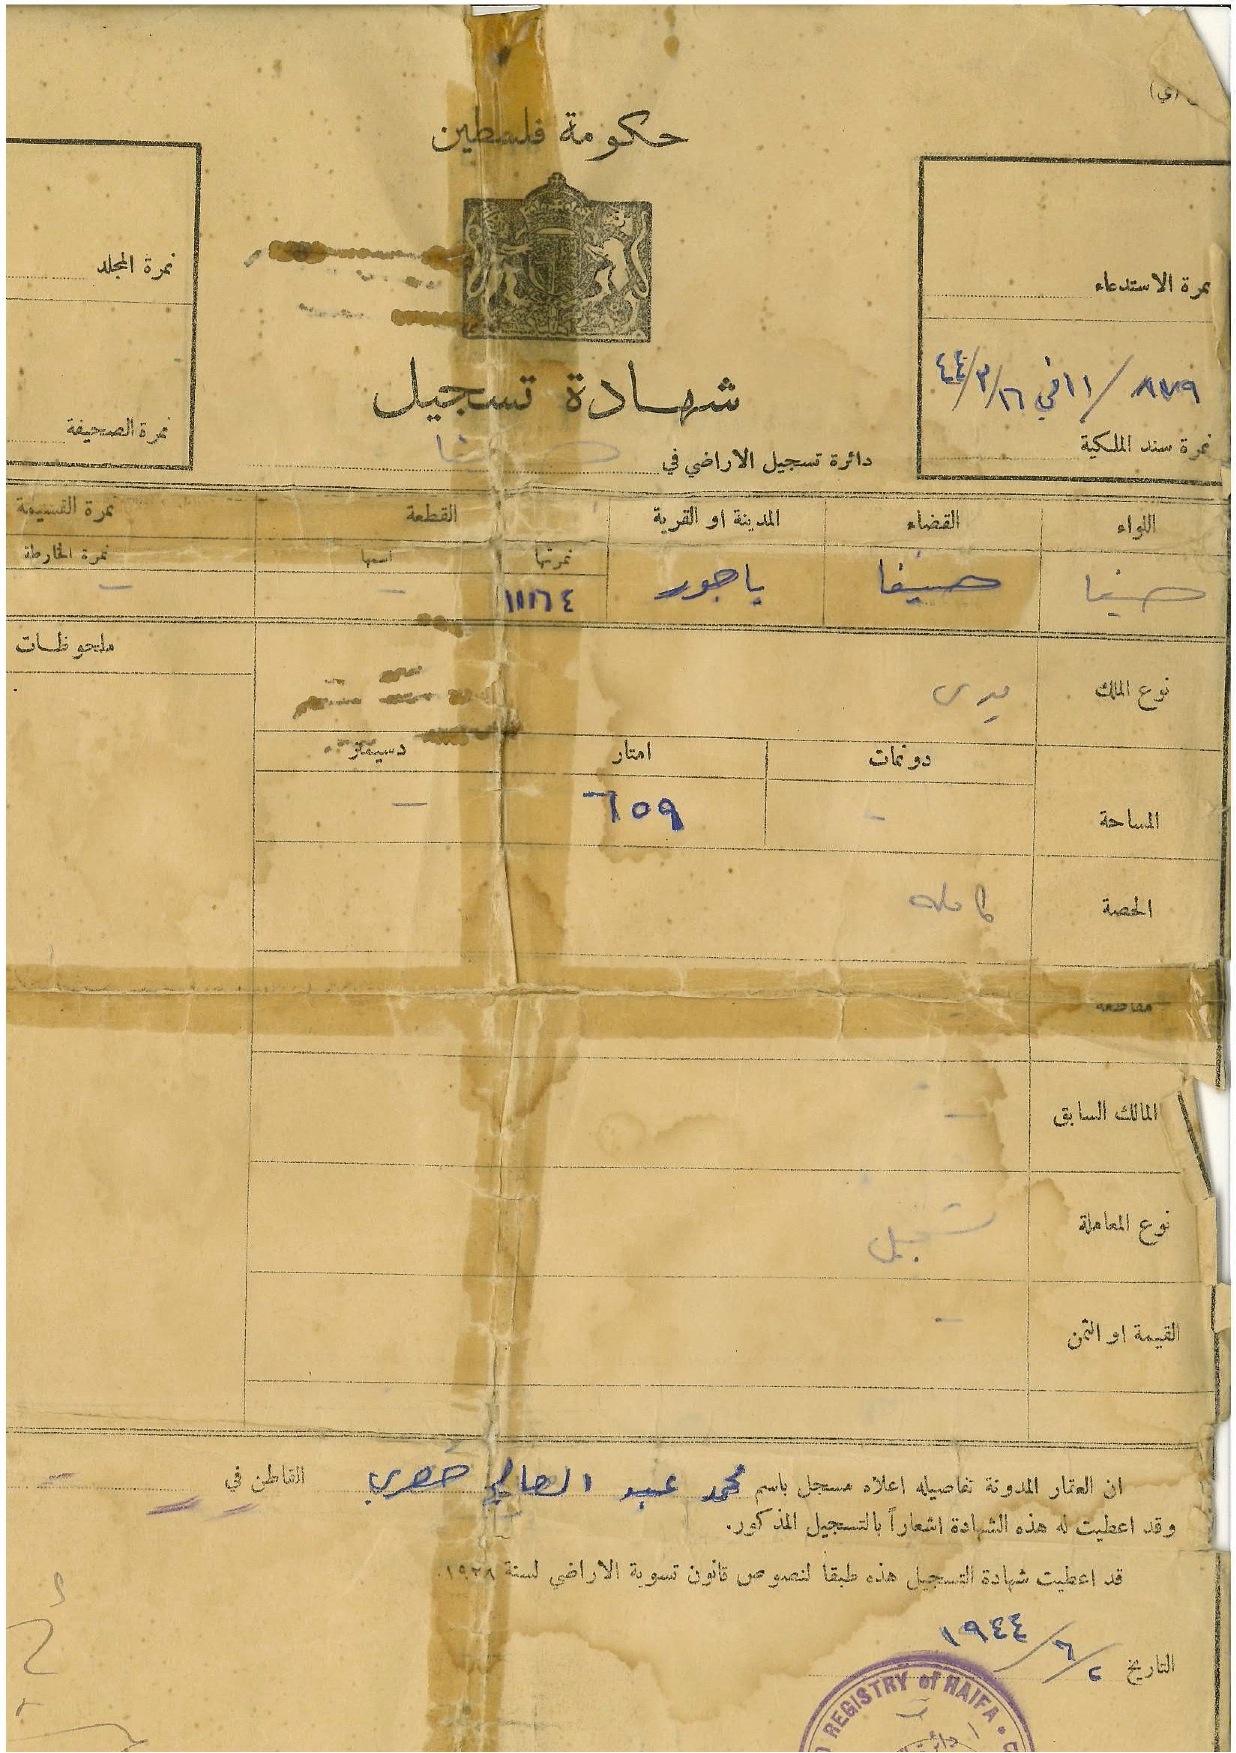 (ي)
حكومة فلسطين
نمرة الاستدعاء
٨٧٩ / ١١ في ١٦/٣/٤٤
نمرة سند الملكية
نمرة المجلد
نمرة الصحيفة
شهادة تسجيل
دائرة تسجيل الاراضي في حيفا
اللواء القضاء المدينة او القرية القطعة نمرة القسيمة
نمرتها اسمها نمرة الخارطة
حيفا حيفا ياجور ١١١٦٤ - -
ملحوظات
نوع الملك ميري
دونمات امتار دسيمتر
المساحة - ٦٥٩ -
الحصة كاملة
مقاطعة
المالك السابق -
نوع المعاملة تسجيل
القيمة او الثمن -
ان العقار المدونة تفاصيله اعلاه مسجل باسم محمد عبد الصالح خضري القاطن في -
وقد اعطيت له هذه الشهادة اشعاراً بالتسجيل المذكور.
قد اعطيت شهادة التسجيل هذه طبقا لنصوص قانون تسوية الاراضي لسنة ١٩٢٨.
التاريخ ٢/٦/١٩٤٤
REGISTRY of HAIFA